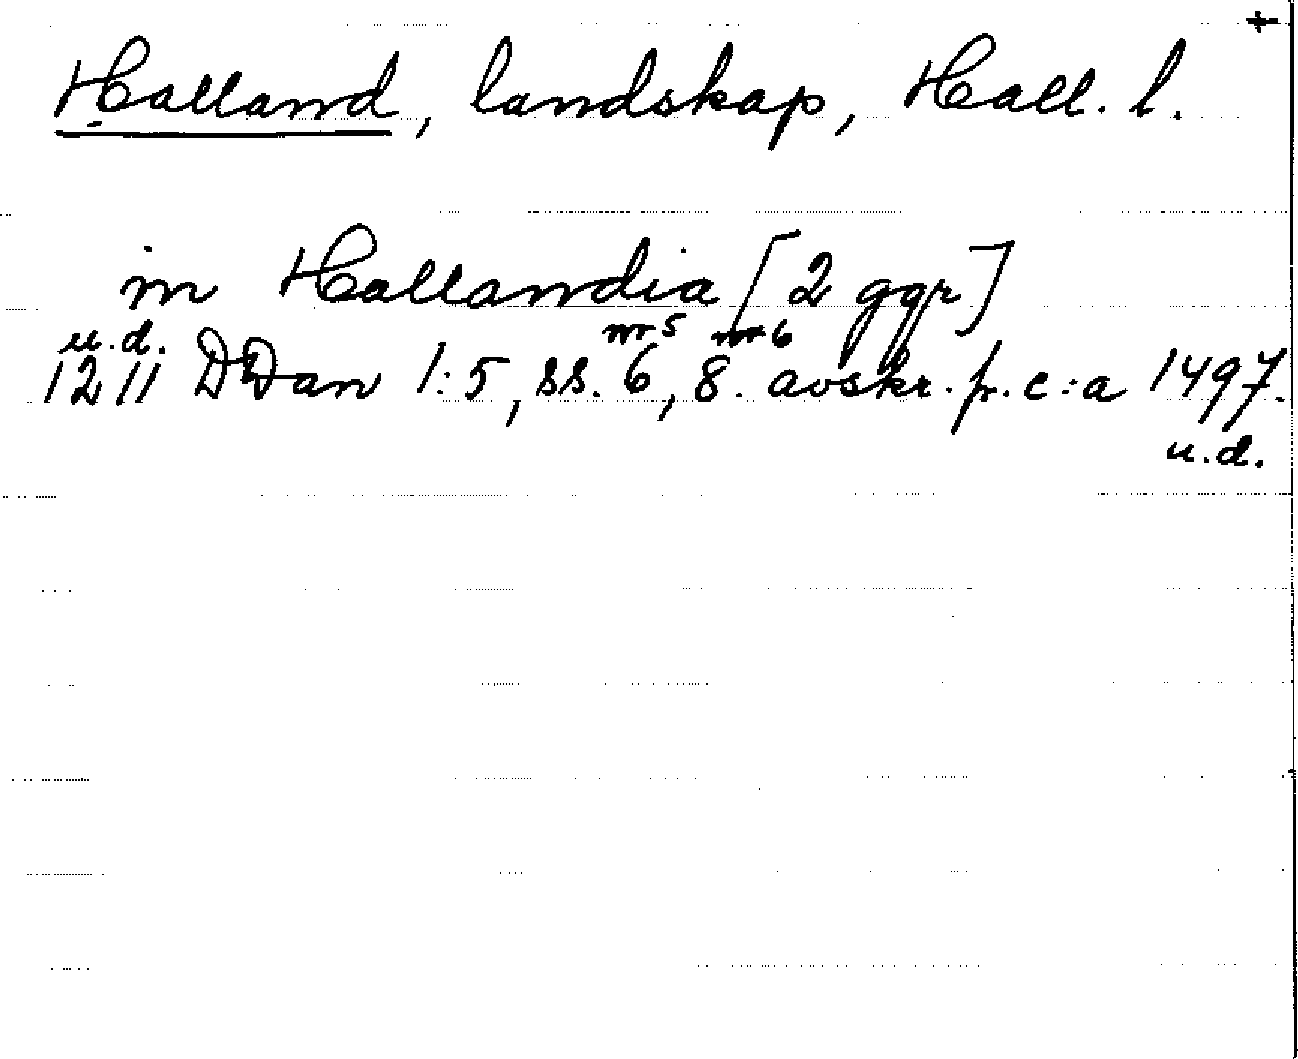 +
Halland, landskap, Hall. l.
in Hallandia [2 ggr]
u.d. nr 5 nr 6
1211 DDan 1:5, ss. 6, 8. avskr. p. c:a 1497.
u.d.